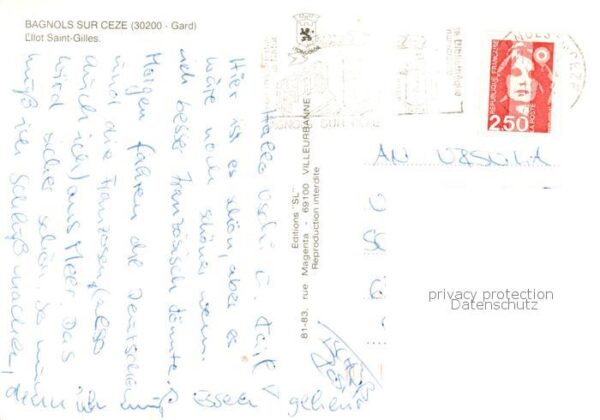 BAGNOLS SUR CEZE (30200 - Gard)
L'Ilot Saint-Gilles.
Hallo Uschi
Hier ist es schön, aber es
wäre noch schöner wenn
ich besser Französisch könnte.
Morgen fahren die Deutschen
und die Franzosen (also
auch ich) ans Meer. Das
wird sicher schön. So nun
muß ich Schluß machen,
denn ich muß Essen gehen
Editions "SL"
81-83, rue Magenta - 69100 VILLEURBANNE
Reproduction interdite
BAGNOLS SUR CEZE
REPUBLIQUE FRANÇAISE
LA POSTE
2,50
AN URSULA
privacy protection
Datenschutz